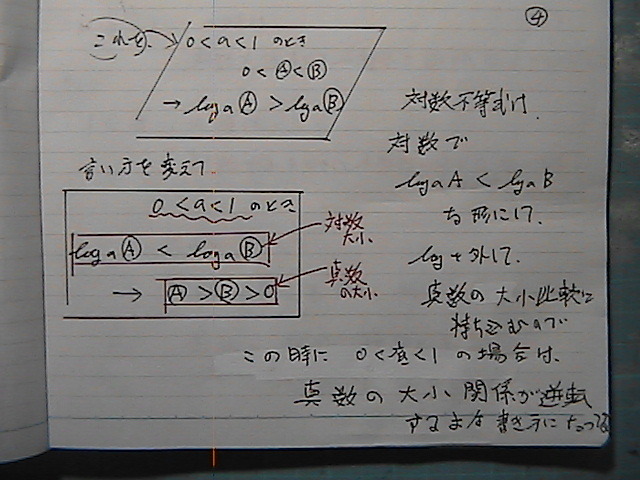 ④
これを、
0<a<1 のとき
0<Ⓐ<Ⓑ
→ logaⒶ > logaⒷ
言い方を変えて
0<a<1 のとき
logaⒶ < logaⒷ
対数
大小
→ Ⓐ>Ⓑ>0
真数
の大小
対数不等式は、
対数で
logaA < logaB
な形にして、
logを外して、
真数の大小比較に
持ち込むので
この時に 0<底<1 の場合は、
真数の大小関係が逆転
するような書き方になってる